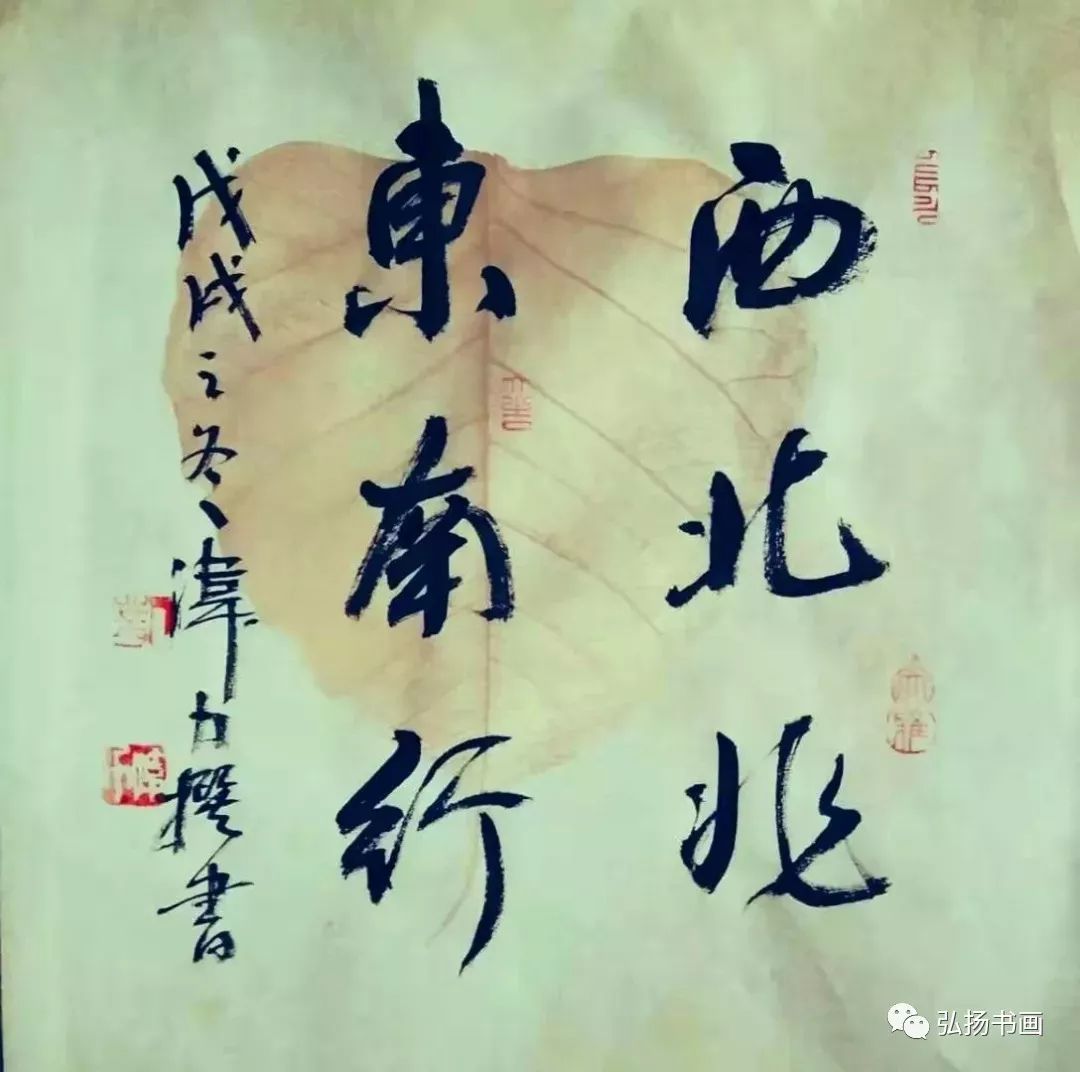 西北兆
東南行
戊戌之冬渾力撰書
弘扬书画